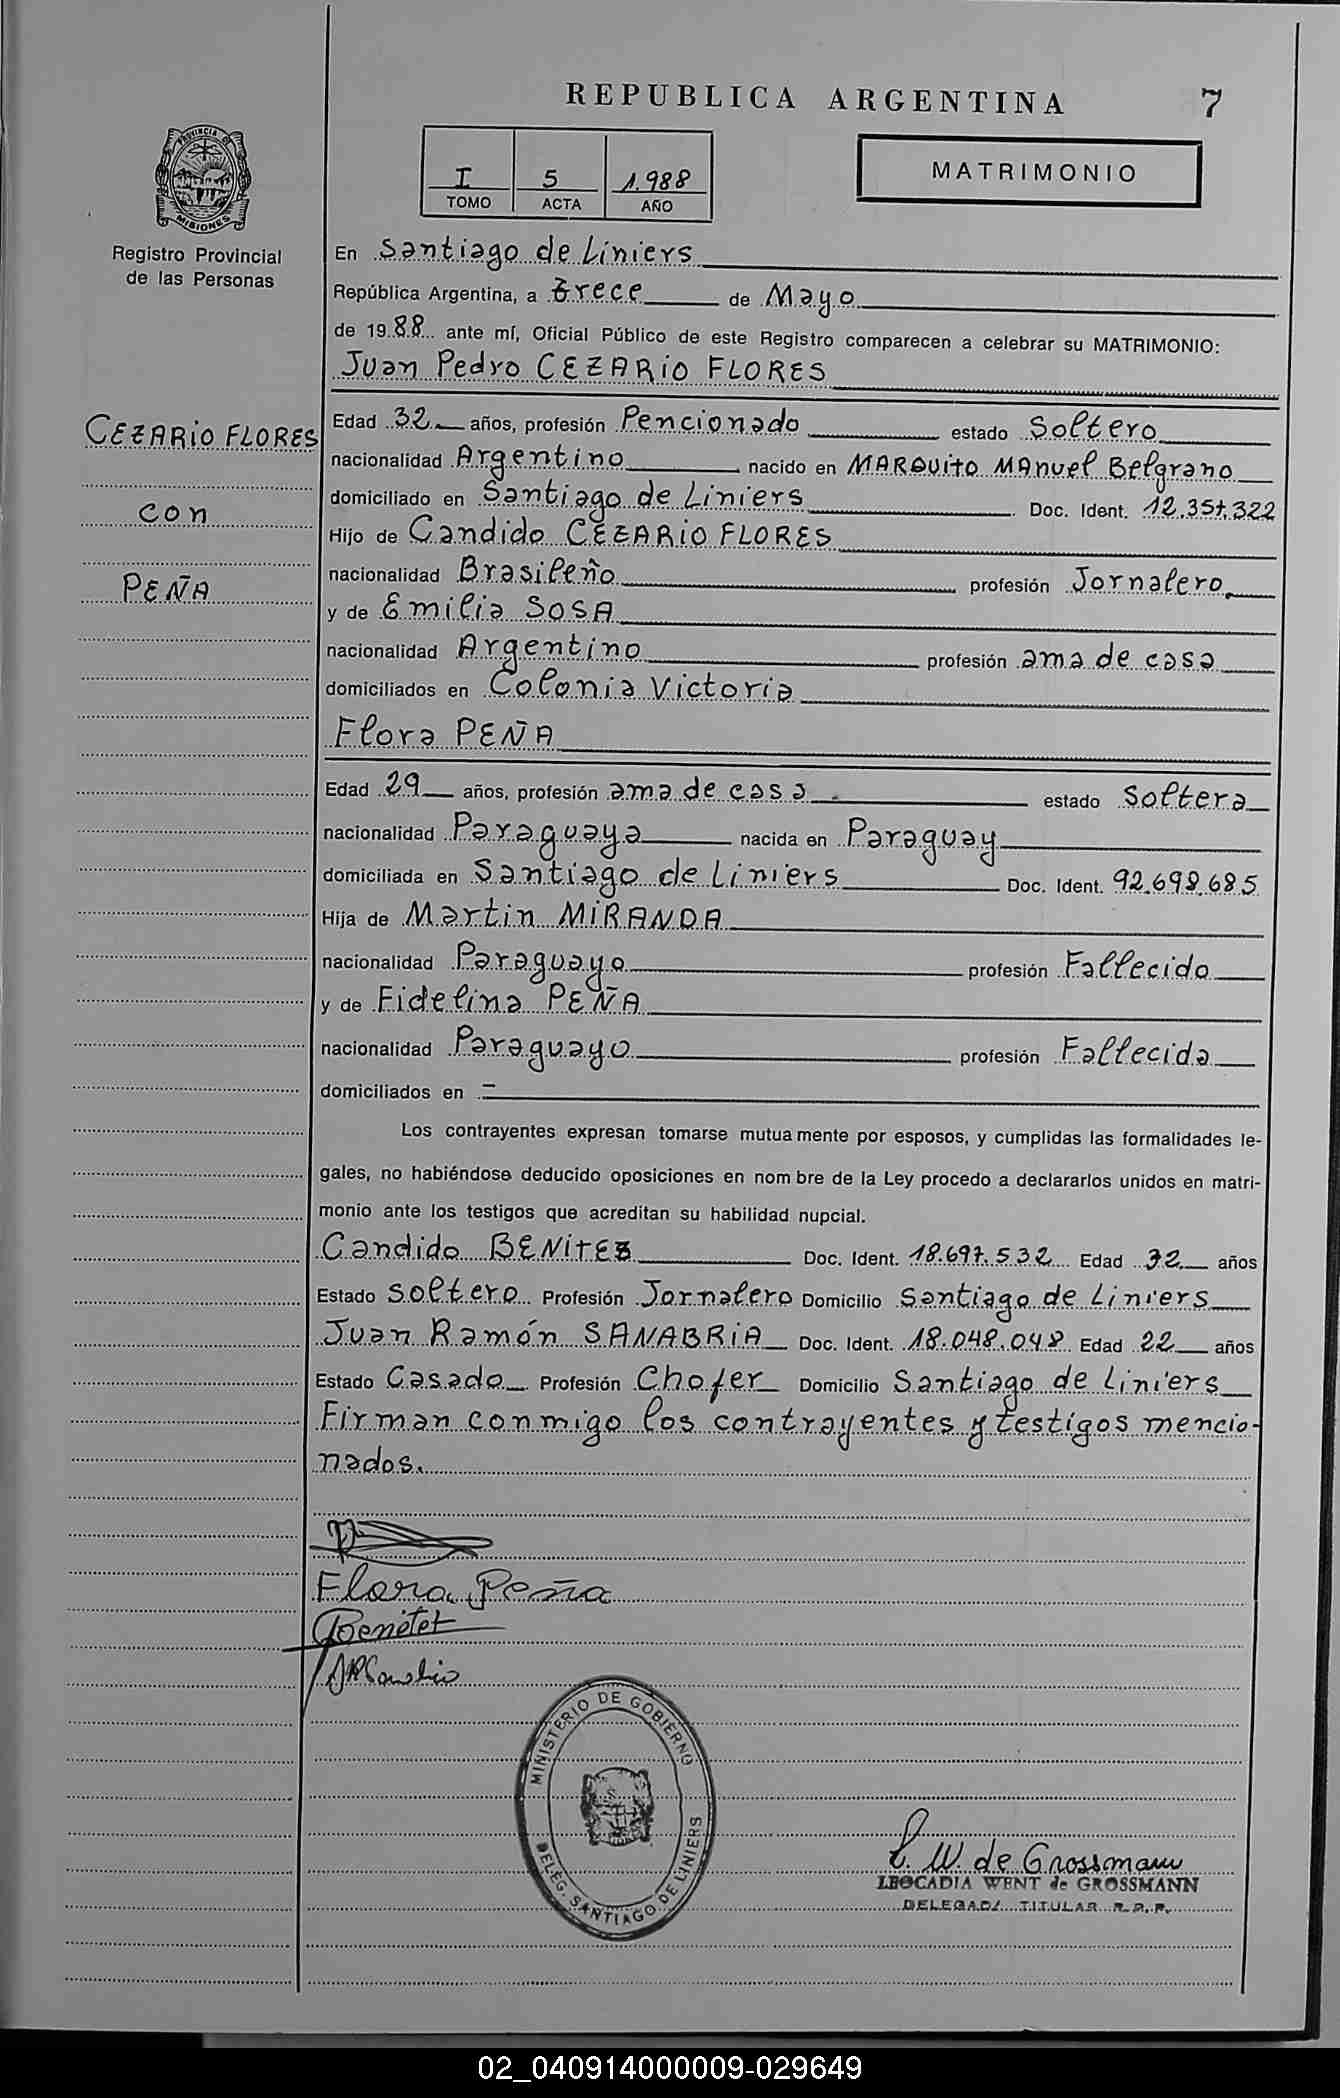 REPUBLICA ARGENTINA 7
PROVINCIA DE
MISIONES
Registro Provincial
de las Personas
I 5 1.988
TOMO ACTA AÑO
MATRIMONIO
En Santiago de Liniers
República Argentina, a trece de Mayo
de 1988 ante mí, Oficial Público de este Registro comparecen a celebrar su MATRIMONIO:
Juan Pedro CEZARIO FLORES
CEZARIO FLORES
con
PEÑA
Edad 32 años, profesión Pencionado estado Soltero
nacionalidad Argentino nacido en MARQUITO MANuel Belgrano
domiciliado en Santiago de Liniers Doc. Ident. 12.357.322
Hijo de Candido CEZARIO FLORES
nacionalidad Brasileño profesión Jornalero
y de Emilia SOSA
nacionalidad Argentino profesión ama de casa
domiciliados en Colonia Victoria
Flora PEÑA
Edad 29 años, profesión ama de casa estado Soltera
nacionalidad Paraguaya nacida en Paraguay
domiciliada en Santiago de Liniers Doc. Ident. 92.698.685
Hija de Martin MIRANDA
nacionalidad Paraguayo profesión Fallecido
y de Fidelina PEÑA
nacionalidad Paraguayo profesión Fallecida
domiciliados en =
Los contrayentes expresan tomarse mutuamente por esposos, y cumplidas las formalidades le-
gales, no habiéndose deducido oposiciones en nombre de la Ley procedo a declararlos unidos en matri-
monio ante los testigos que acreditan su habilidad nupcial.
Candido BENITEZ Doc. Ident. 18.697.532 Edad 32 años
Estado soltero Profesión Jornalero Domicilio Santiago de Liniers
Juan Ramón SANABRIA Doc. Ident. 18.048.048 Edad 22 años
Estado Casado Profesión Chofer Domicilio Santiago de Liniers
Firman conmigo los contrayentes y testigos mencio-
nados.
Flora Peña
Benitet
MINISTERIO DE GOBIERNO
DELEG. SANTIAGO DE LINIERS
L. W. de Grossmann
LEOCADIA WENT de GROSSMANN
DELEGADA TITULAR R.P.P.
02_040914000009-029649